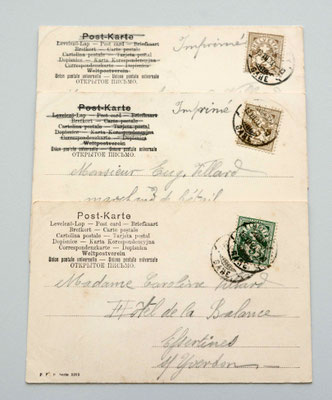 Post-Karte
Levelezi-Lap — Post card — Briefkaart
Brefkort — Carte postale
Cartolina postale — Tarjeta postal
Dopisnice — Karta Korespondencyjna
Correspondenzkarte — Dopisnica
Weltpostverein
Union postale universelle — Unione postale universale
ОТКРЫТОЕ ПИСЬМО.
Imprimé
Post-Karte
Levelezi-Lap — Post card — Briefkaart
Brefkort — Carte postale
Cartolina postale — Tarjeta postal
Dopisnice — Karta Korespondencyjna
Correspondenzkarte — Dopisnica
Weltpostverein
Union postale universelle — Unione postale universale
ОТКРЫТОЕ ПИСЬМО.
Imprimé
Monsieur Eug. Villard
Post-Karte
Levelezi-Lap — Post card — Briefkaart
Brefkort — Carte postale
Cartolina postale — Tarjeta postal
Dopisnice — Karta Korespondencyjna
Correspondenzkarte — Dopisnica
Weltpostverein
Union postale universelle — Unione postale universale
ОТКРЫТОЕ ПИСЬМО.
Madame Caroline Villard
Hôtel de la Balance
Essertines
s/ Yverdon